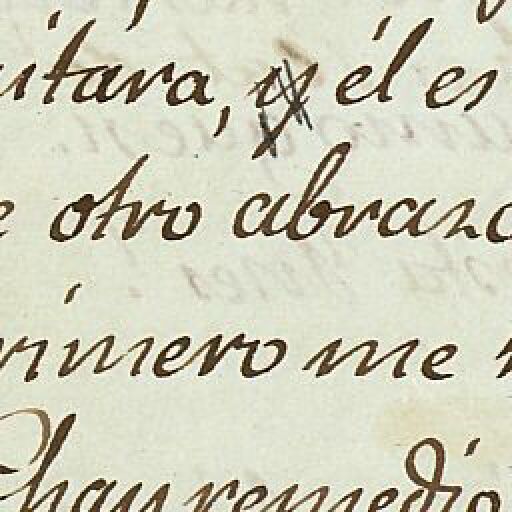 uitára, y él es
e otro abrazo
rimero me
Chay remedio